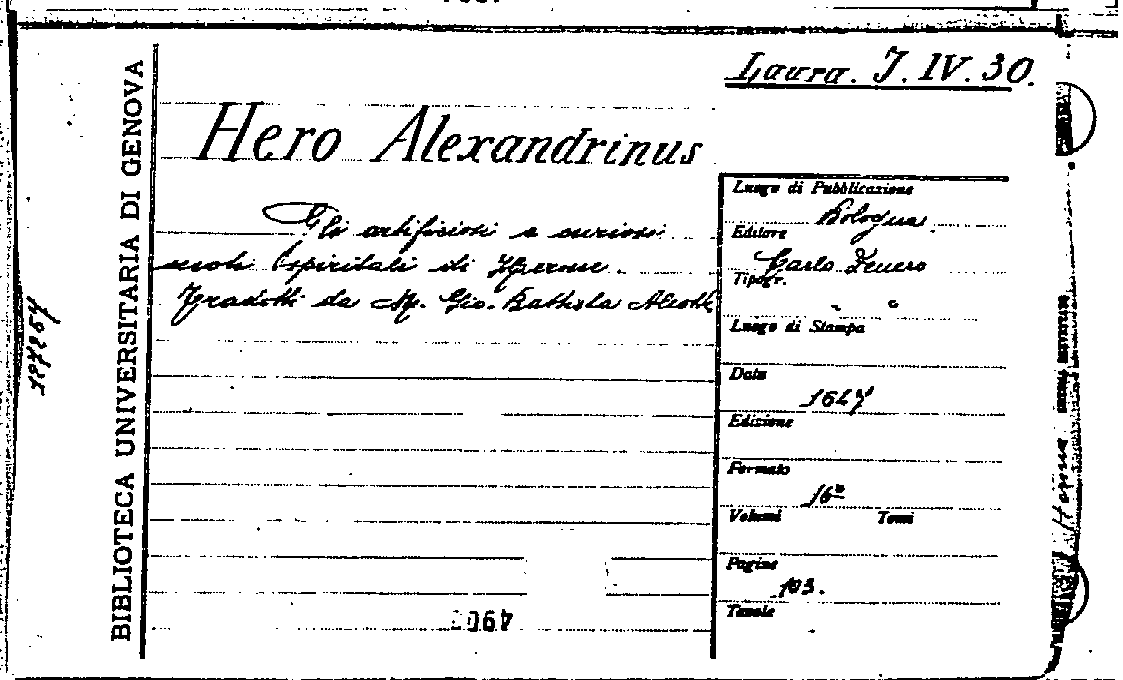 Laura. J. IV. 30.
Hero Alexandrinus
Gli artificiosi e curiosi
moti spiritali di Herone.
Tradotti da M. Gio. Battista Aleotti
BIBLIOTECA UNIVERSITARIA DI GENOVA
Luogo di Pubblicazione
Bologna
Editore
Carlo Zenero
Tipogr.
Luogo di Stampa
Data
1647
Edizione
Formato
16º
Volumi Tomi
Pagine
103.
Tavole
187264